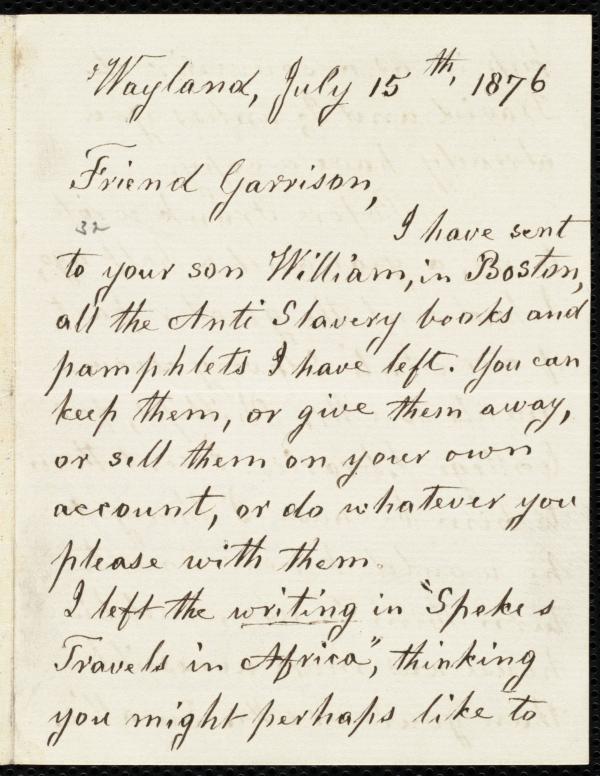 Wayland, July 15th, 1876
Friend Garrison,
32
I have sent
to your son William, in Boston,
all the Anti Slavery books and
pamphlets I have left. You can
keep them, or give them away,
or sell them on your own
account, or do whatever you
please with them.
I left the writing in "Spekes
Travels in Africa", thinking
you might perhaps like to